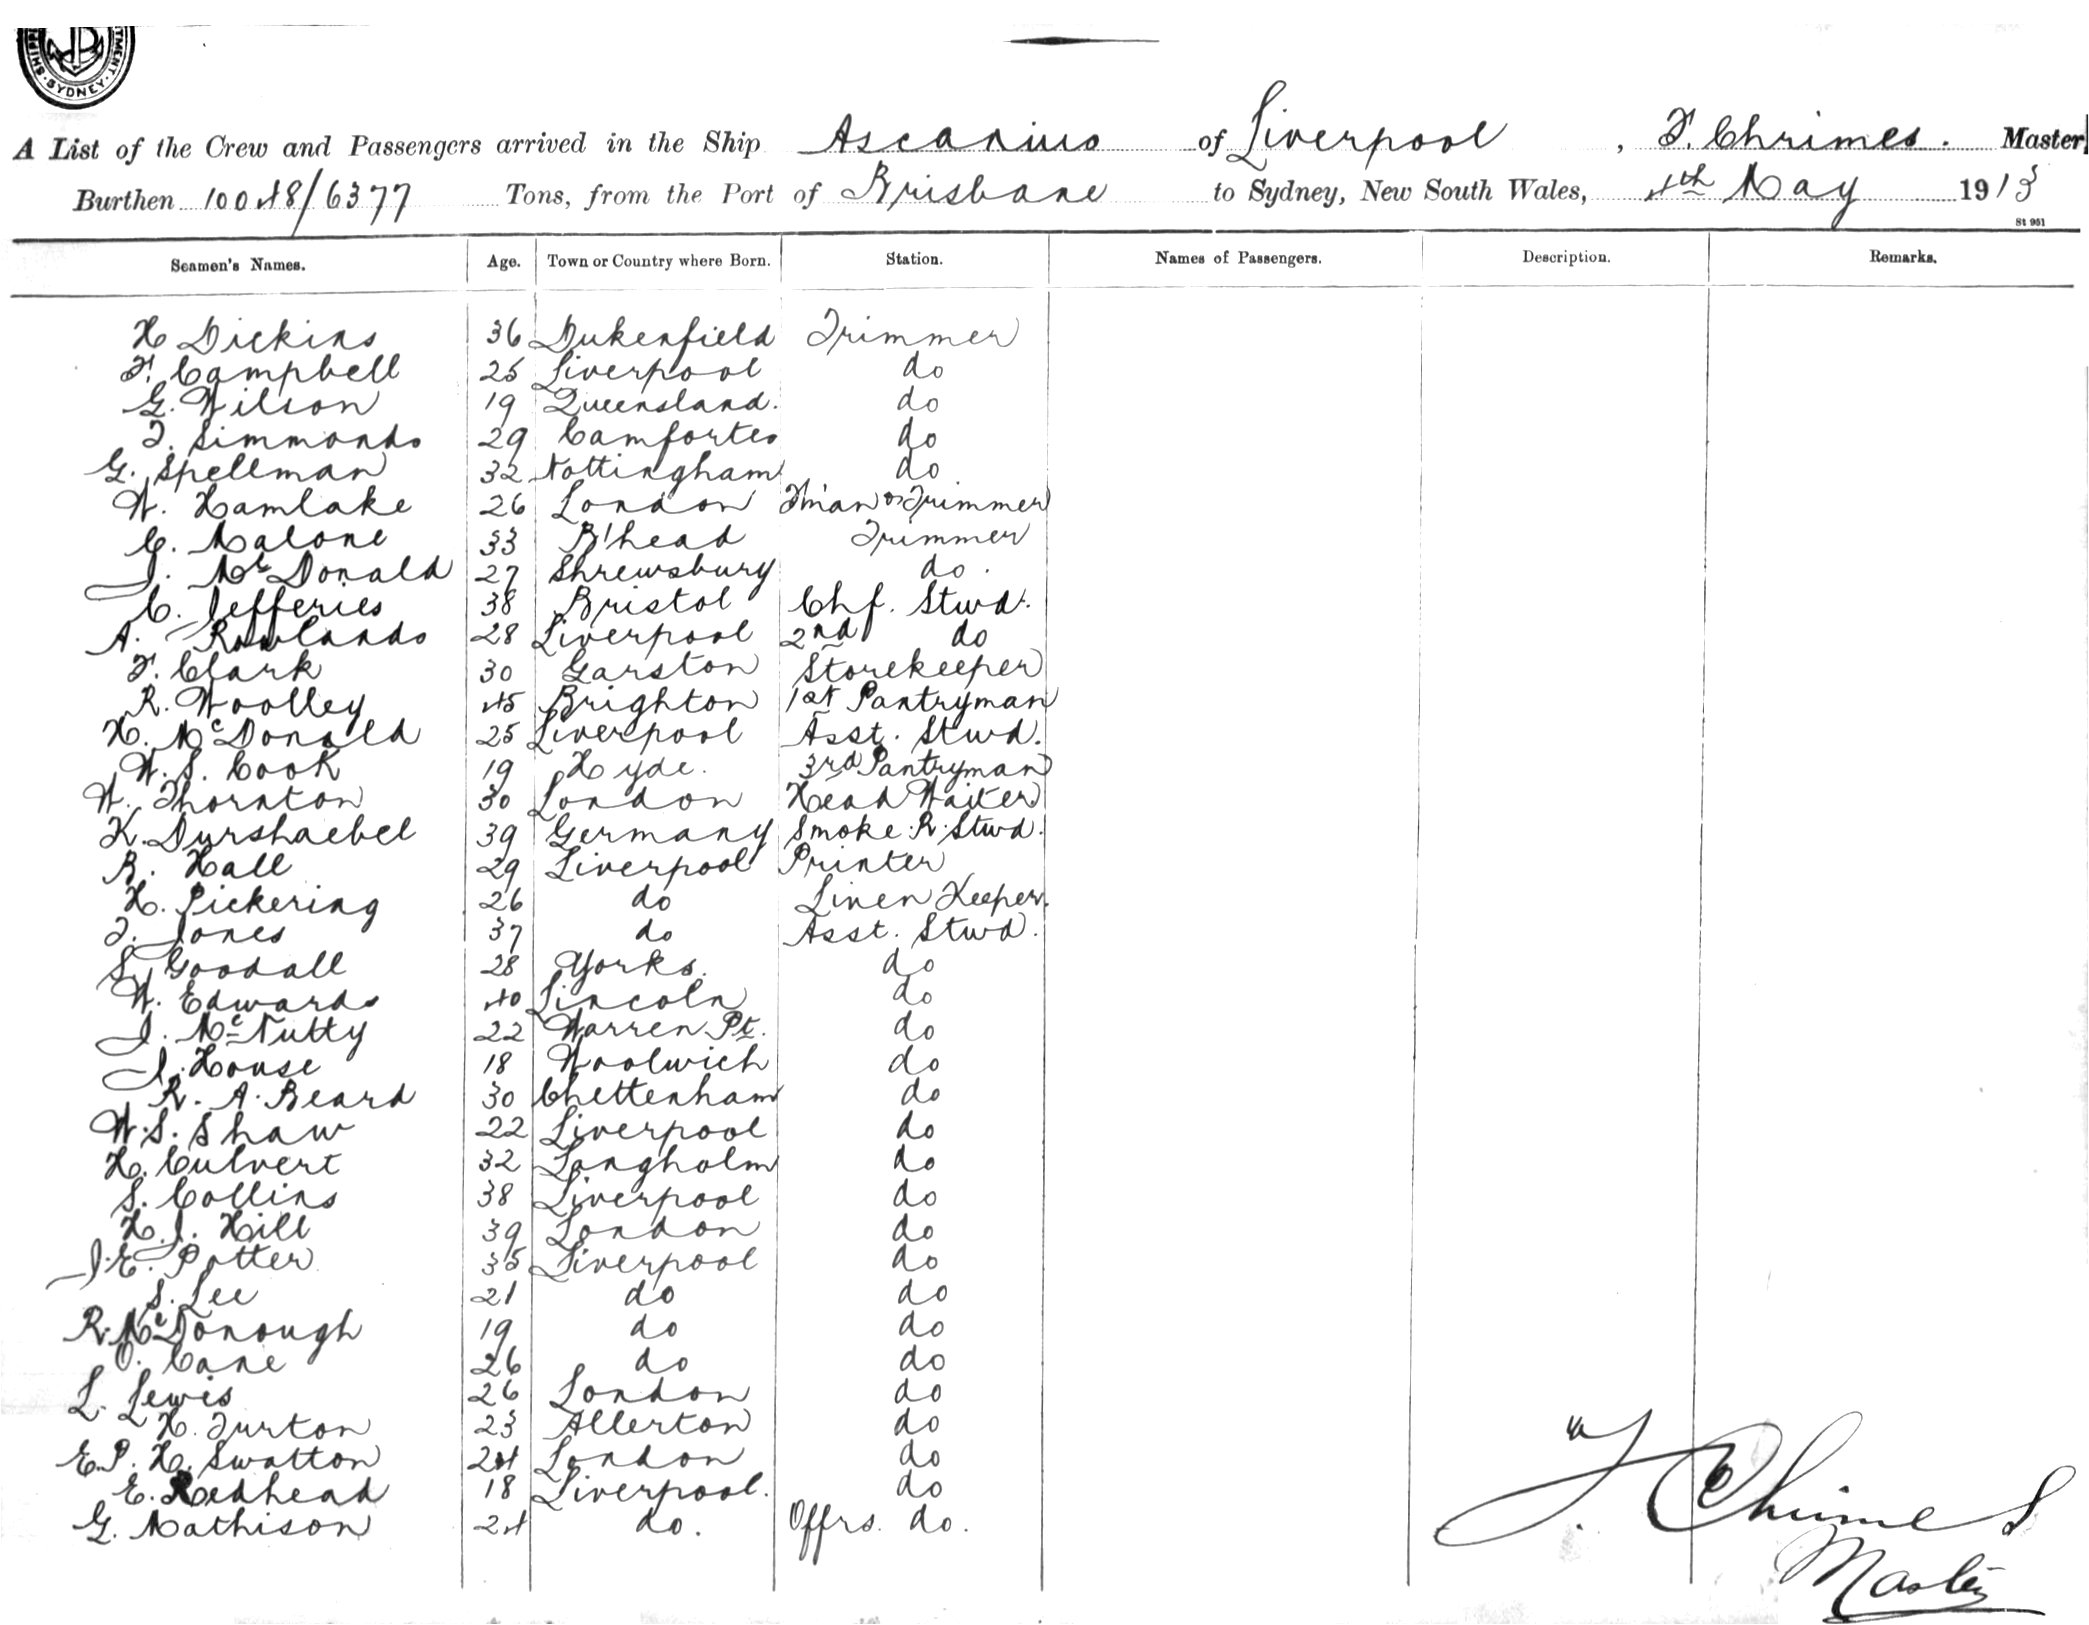 SHIPPING DEPARTMENT. SYDNEY
A List of the Crew and Passengers arrived in the Ship Ascanius of Liverpool, F. Chrimes. Master
Burthen 10048/6377 Tons, from the Port of Brisbane to Sydney, New South Wales, 4th May 1913
St 951
Seamen's Names. Age. Town or Country where Born. Station. Names of Passengers. Description. Remarks.
H Dickins 36 Dukenfield Trimmer
F. Campbell 25 Liverpool do
G. Wilson 19 Queensland. do
T. Simmonds 29 Camfortes do
G. Spellman 32 Nottingham do
W. Hamlake 26 London F'man & Trimmer
C. Malone 33 B'head Trimmer
J. McDonald 27 Shrewsbury do.
C. Jefferies 38 Bristol Chf. Stwd.
A. Rowlands 28 Liverpool 2nd do
F. Clark 30 Garston Storekeeper
R. Woolley 45 Brighton 1st Pantryman
H. McDonald 25 Liverpool Asst. Stwd.
W. S. Cook 19 Hyde. 3rd Pantryman
W. Thornton 30 London Head Waiter
K. Durshaebel 39 Germany Smoke R. Stwd.
B. Hall 29 Liverpool Printer
H. Pickering 26 do Linen Keeper.
T. Jones 37 do Asst. Stwd.
S. Goodall 28 Yorks. do
W. Edwards 40 Lincoln do
J. McNutty 22 Warren Pt. do
J. House 18 Woolwich do
R. A. Beard 30 Chettenham do
W. S. Shaw 22 Liverpool do
H. Culvert 32 Langholm do
S. Collins 38 Liverpool do
H. J. Hill 39 London do
J. E. Potter 35 Liverpool do
S. Lee 21 do do
R. McDonough 19 do do
O. Cane 26 do do
L. Lewis 26 London do
H. Turton 23 Allerton do
E. P. H. Swatton 24 London do
E. Redhead 18 Liverpool. do
G. Mathison 24 do. Offrs. do.
F. Chrimes
Master